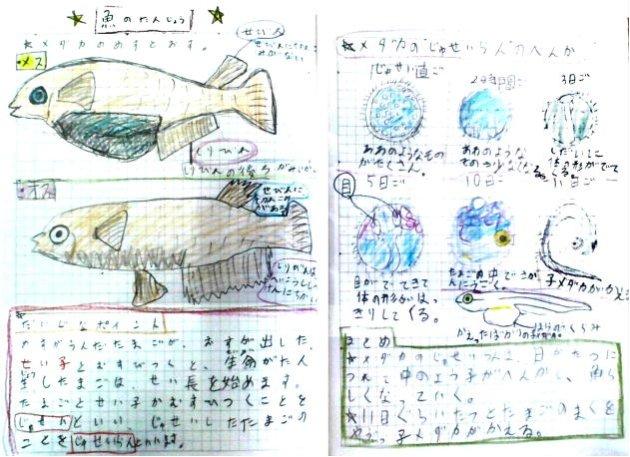 魚のたんじょう
★メダカのめすとおす。
せびれ
メス
しりびれ
しりびれの後ろが
オス
せびれに
だいじなポイント
めすがうんだたまごが、おすが出した、
せい子とむすびつくと、生命がたん
生したまごは、せい長を始めます。
たまごとせい子がむすびつくことを
じゅせいといい、じゅせいしたたまごの
ことをじゅせいらんといいます。
★メダカの"じゅせいらん"のへんか
じゅせい直ご
2時間ご
3日ご
あわのようなもの
がたくさん。
あわのような
ものが少なくなる
しだいに
体の形がでて
くる。
5日ご
10日ご
11日ご
目
目がでてきて
体の形がはっ
きりしてくる。
たまごの中で
子メダカがかえる
かえったばかりの
はらのふくらみ
まとめ
★メダカのじゅせいらんは、日がたつに
つれて中のよう子がへんかし、魚ら
しくなっていく。
★11日ぐらいたつとたまごのまくを
やぶって子メダカがかえる。